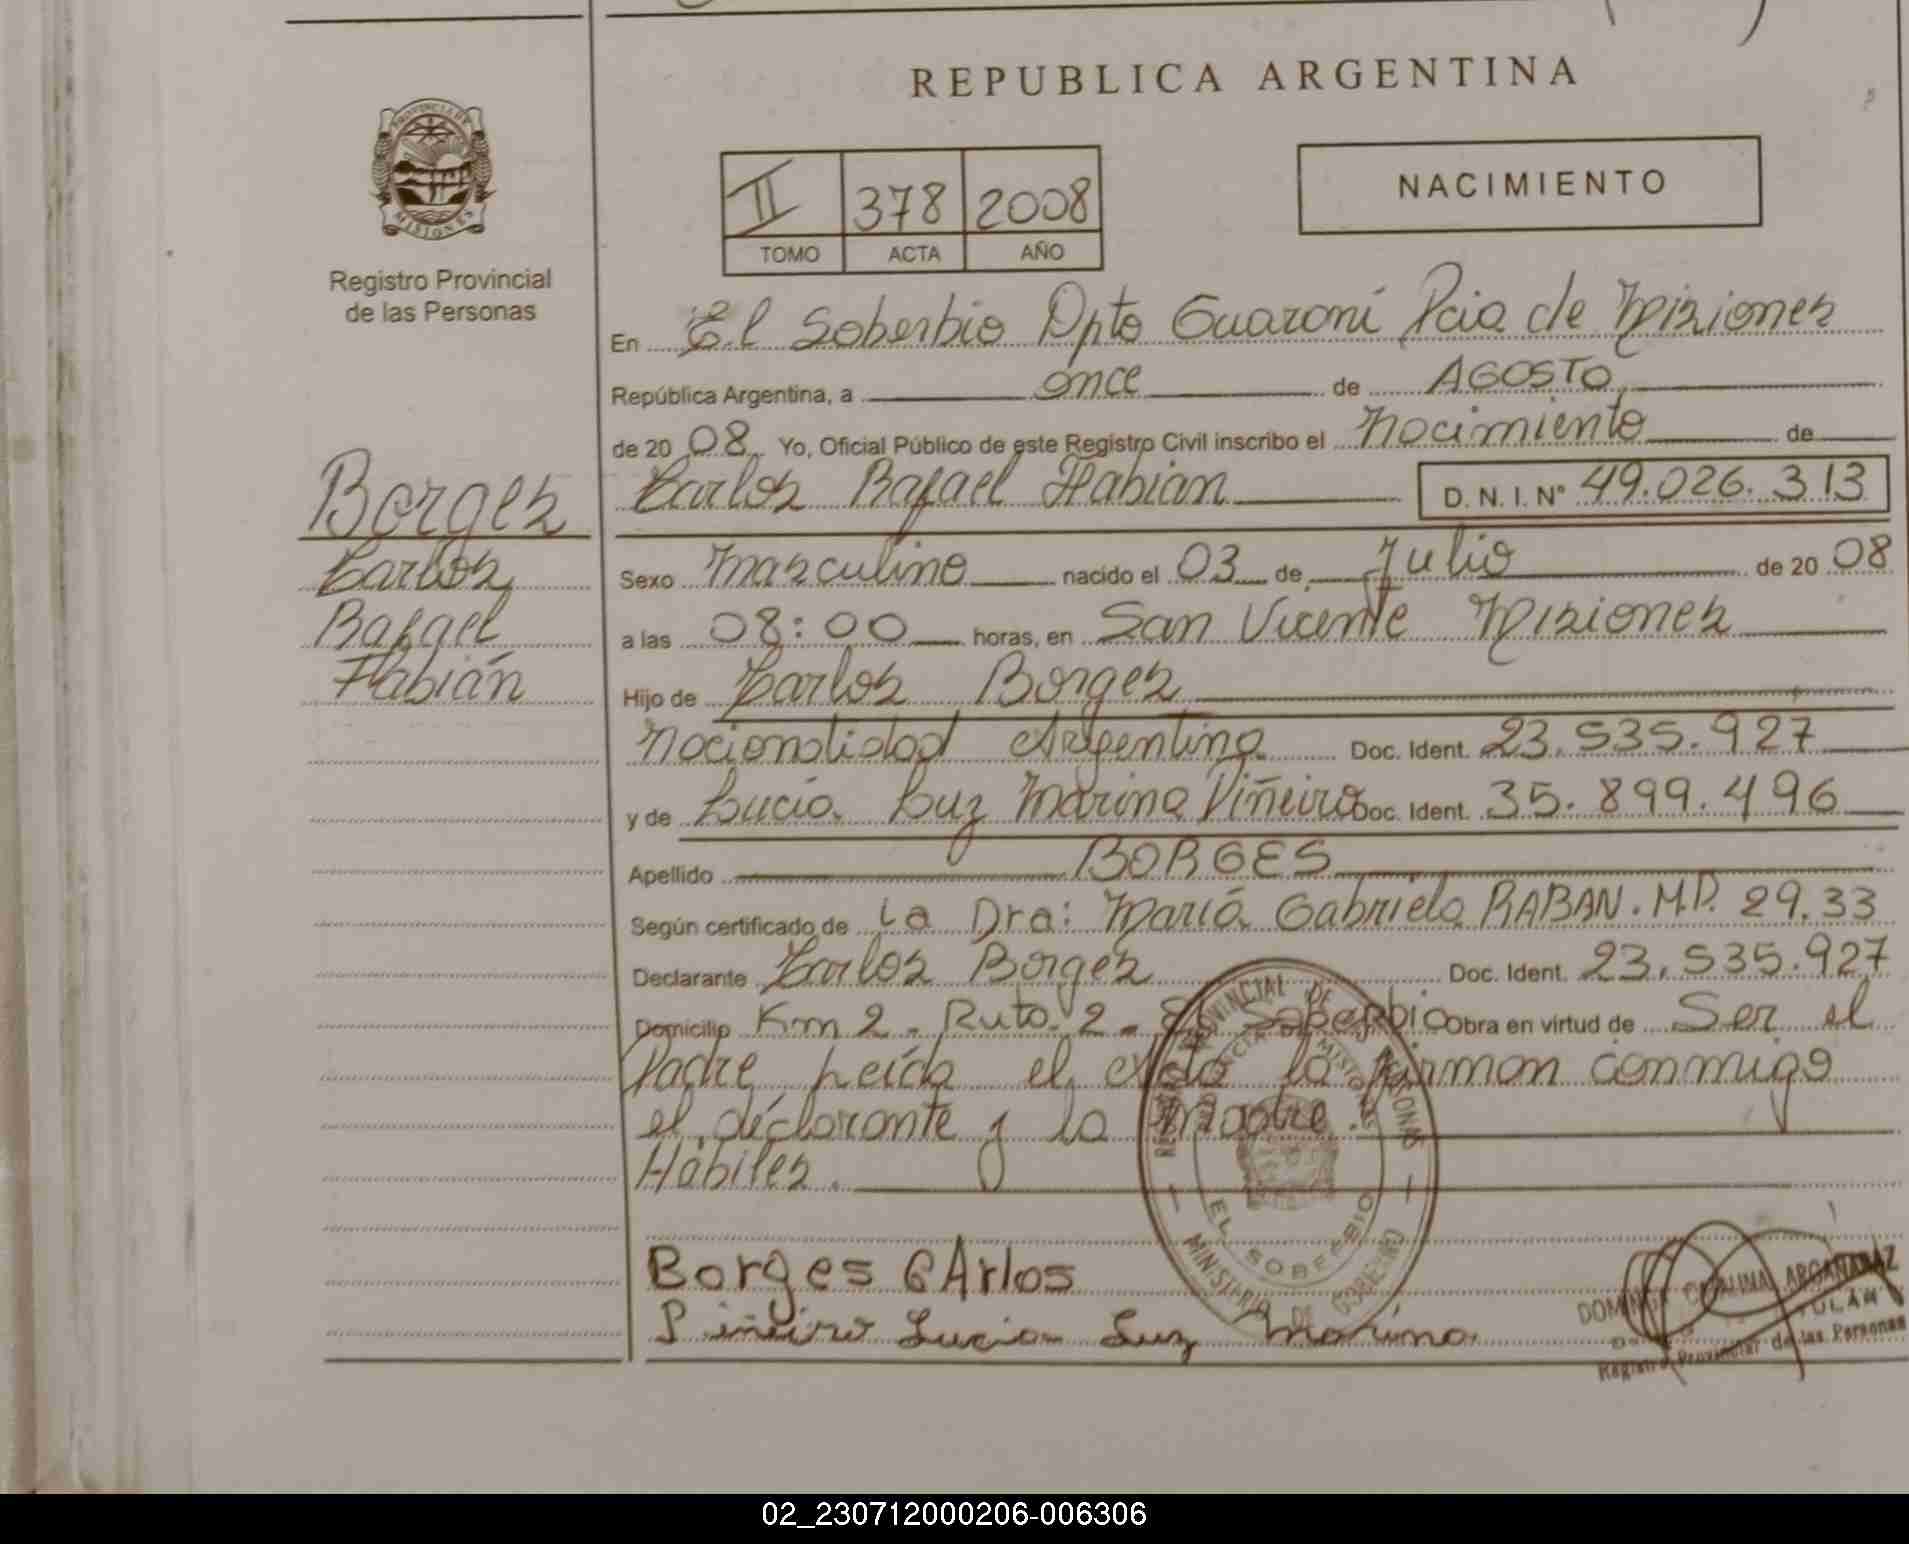 REPUBLICA ARGENTINA
PROVINCIA DE
MISIONES
Registro Provincial
de las Personas
II 378 2008
TOMO ACTA AÑO
NACIMIENTO
En El Soberbio Dpto Guaraní Pcia de Misiones
República Argentina, a once de AGOSTO
de 20 08 Yo, Oficial Público de este Registro Civil inscribo el Nacimiento de
Carlos Rafael Fabian D. N. I. N° 49.026.313
Borges
Carlos
Rafael
Fabián
Sexo Masculino nacido el 03 de Julio de 20 08
a las 08:00 horas, en San Vicente Misiones
Hijo de Carlos Borges
Nacionalidad Argentina Doc. Ident. 23.535.927
y de Lucia Luz Marina Piñeiro Doc. Ident. 35.899.496
Apellido BORGES
Según certificado de La Dra: María Gabriela RABAN. M.P. 29.33
Declarante Carlos Borges Doc. Ident. 23.535.927
Domicilio Km 2 - Ruta 2 - El Soberbio Obra en virtud de Ser el
Padre Leída el Acta la firman conmigo
el declarante y la madre.
Hábiles.
REGISTRO PROVINCIAL DE LAS PERSONAS
PROVINCIA DE MISIONES
EL SOBERBIO
MINISTERIO DE GOBIERNO
Borges CArlos
Piñeiro Lucia Luz Marina
CATALINA ARGAÑARAZ
TITULAR
Registro Provincial de las Personas
02_230712000206-006306